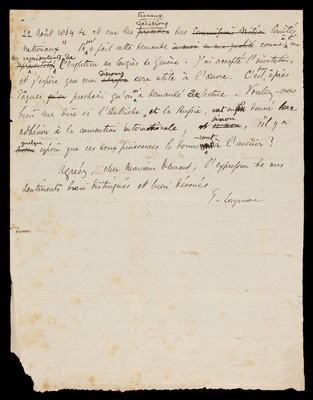 travaux
décisions
22 Août 1864 et sur les Comités
nationaux" l'on m'a fait cette demande comme
un représentant de
l'Angleterre au Congrès de Genève - J'ai accepté l'invitation,
et j'espère que mon discours sera utile à l'œuvre. C'est après
Pâques prochain qu'on m'a demandé cette lecture - Voulez-vous
bien me dire si l'Autriche, et la Russie, ont enfin donné leur
adhésion à la convention internationale, sinon s'il y a
quelque espoir que ces deux puissances la donneront à l'avenir?
Agréez, cher Monsieur Dunant, l'expression de mes
sentiments bien distingués et bien dévoués
T. Longmore